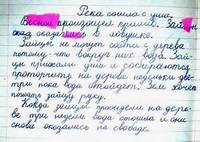 Река сошла с ума.
Весной произошел случай. Зайцы
оказались в ловушке.
Зайцы не могут сойти с дерева
потому-что вокруг них вода. Зай-
цы прижали уши и собираются
проторчать на дереве недельки две-
три пока вода отойдёт. Зем хочет
пожать зайцу руку.
Когда зайцы просидели на дере-
ве три недели вода отошла и они
снова оказались на свободе.